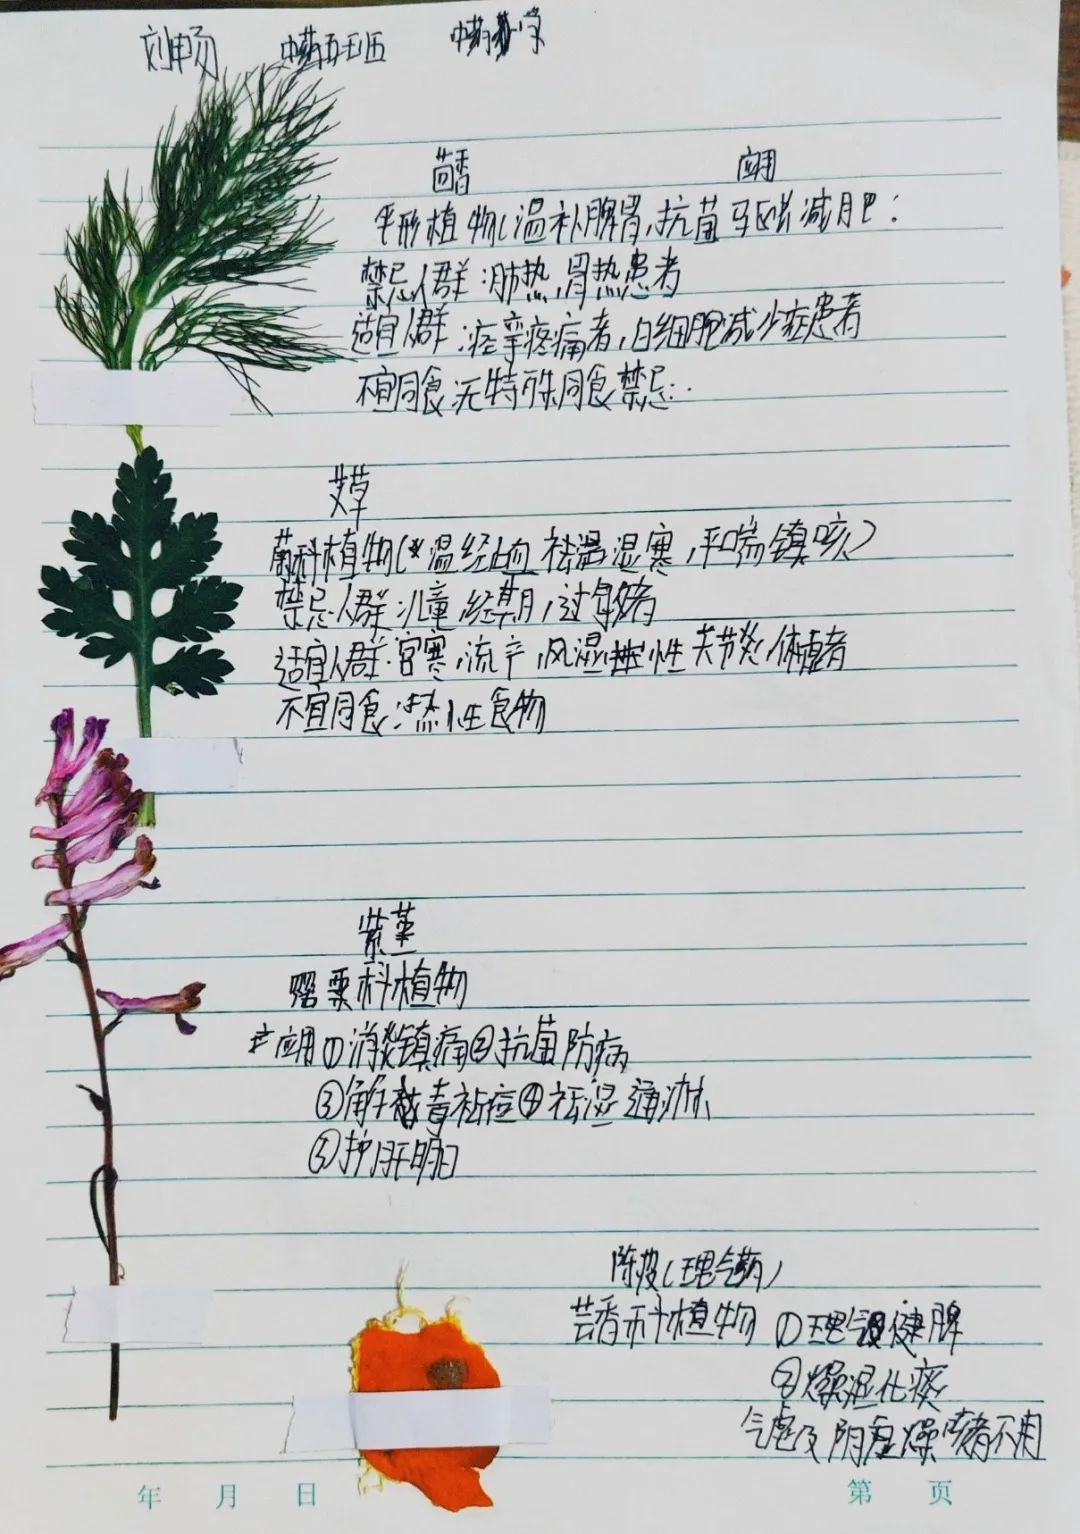 刘畅 中药五班 中药药学
茴香 应用
伞形植物(温补脾胃,抗菌驱蚊减肥:
禁忌人群:肺热,胃热患者
适宜人群:痉挛疼痛者,白细胞减少症患者
不宜同食:无特殊同食禁忌.
艾草
菊科植物(温经止血 祛湿寒,平喘镇咳)
禁忌人群:儿童,经期,过敏者
适宜人群:宫寒,流产,风湿性关节炎,体虚者
不宜同食:热性食物
紫堇
罂粟科植物
应用①消炎镇痛②抗菌防病
③解毒祛痘④祛湿通淋
⑤护肝明目
陈皮(理气药)
芸香科植物 ①理气健脾
②燥湿化痰
气虚及阴虚燥咳者不用
年 月 日 第 页